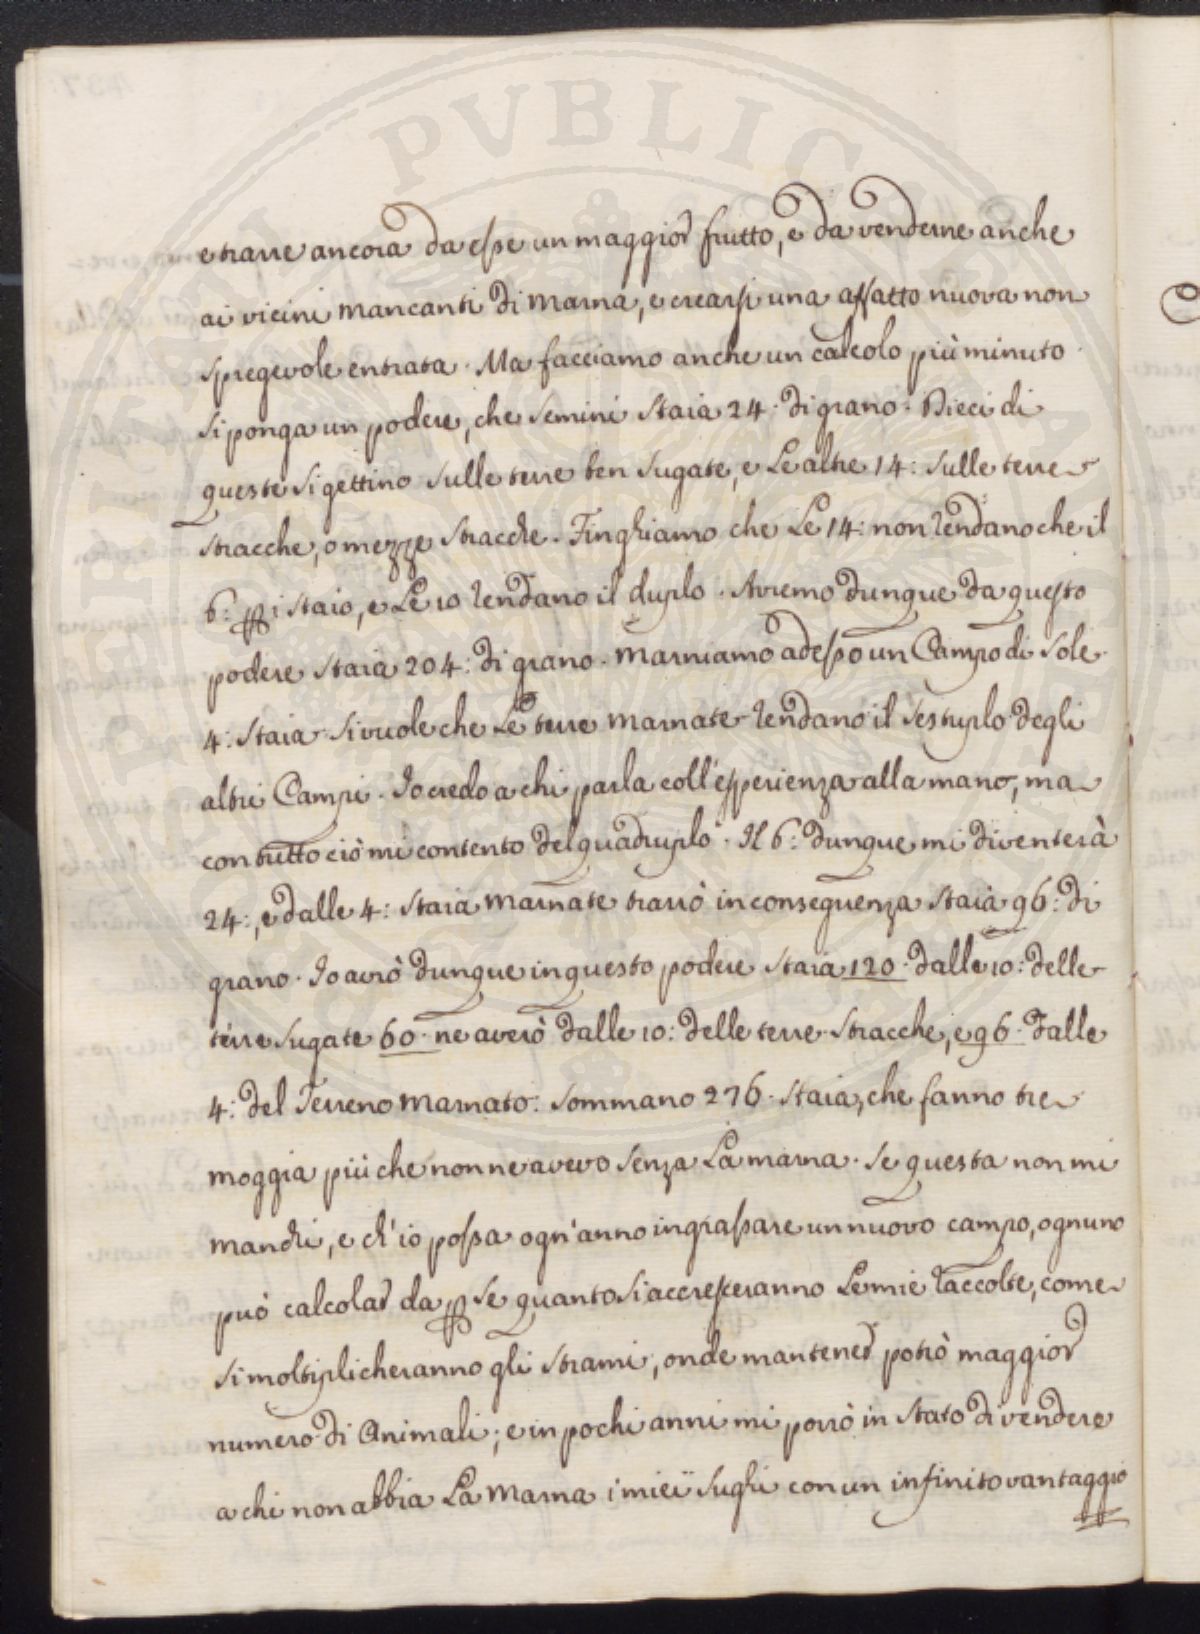 PVBLICAE
e trarre ancora da esse un maggior frutto, e da venderne anche
ai vicini mancanti di marna, e crearsi una affatto nuova non
spregevole entrata. Ma facciamo anche un calcolo più minuto.
Si ponga un podere, che semini Staia 24. di grano. Dieci di
queste si gettino sulle terre ben sugate, e Le altre 14: sulle terre
stracche, o mezze stracche. Finghiamo che Le 14: non rendano che il
6: p i staio, e Le 10 rendano il duplo. Avremo dunque da questo
podere Staia 204: di grano. Marniamo adesso un Campo di sole
4: Staia. Si vuole che Le terre marnate rendano il sestuplo degli
altri Campi. Io credo a chi parla coll'esperienza alla mano, ma
con tutto ciò mi contento del quadruplo. Il 6: dunque mi diventerà
24:, e dalle 4: Staia marnate trarrò in conseguenza Staia 96: di
grano. Io avrò dunque in questo podere Staia 120. dalle 10: delle
terre sugate 60. ne averò dalle 10: delle terre stracche, e 96. dalle
4: del Terreno marnato. Sommano 276. Staia, che fanno tre
moggia più che non ne avevo senza La marna. Se questa non mi
manchi, e ch'io possa ogn'anno ingrassare un nuovo campo, ognuno
può calcolar da p se quanto si accresceranno Le mie raccolte, come
si moltiplicheranno gli strami, onde mantener potrò maggior
numero di Animali; e in pochi anni mi porrò in stato di vendere
a chi non abbia La Marna i mieï sughi con un infinito vantaggio